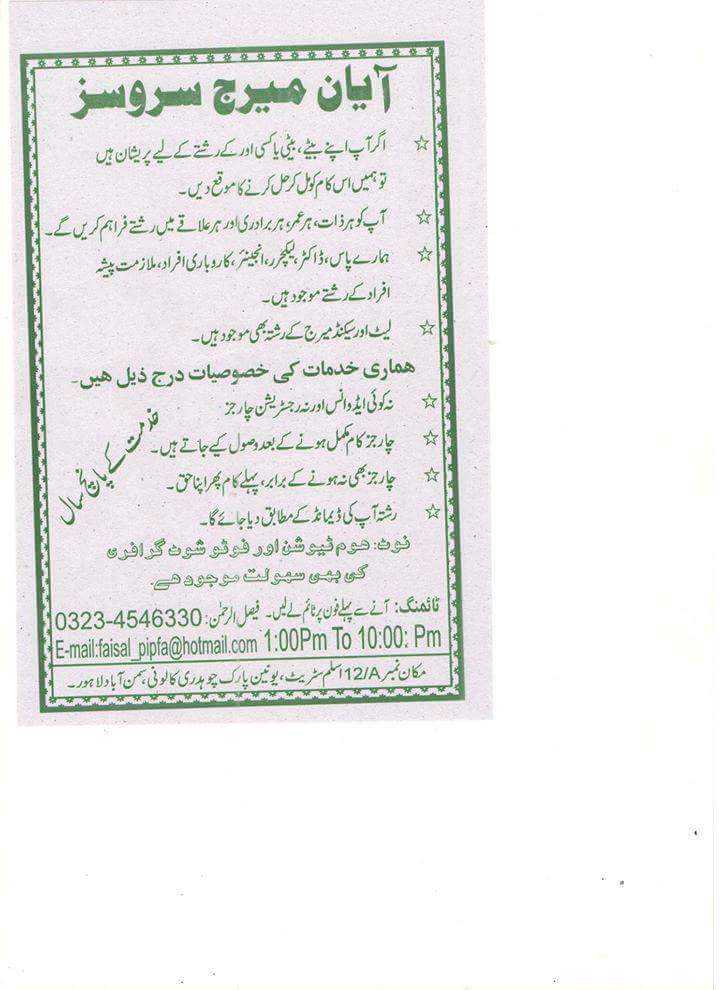 آیان میرج سروسز
☆ اگر آپ اپنے بیٹے، بیٹی یا کسی اور کے رشتے کے لیے پریشان ہیں
تو ہمیں اس کام کو مل کر حل کرنے کا موقع دیں۔
☆ آپ کو ہر ذات، ہر عمر، ہر برادری اور ہر علاقے میں رشتے فراہم کریں گے۔
☆ ہمارے پاس، ڈاکٹر، لیکچرر، انجینئر، کاروباری افراد، ملازمت پیشہ
افراد کے رشتے موجود ہیں۔
☆ لیٹ اور سیکنڈ میرج کے رشتہ بھی موجود ہیں۔
ہماری خدمات کی خصوصیات درج ذیل ہیں۔
☆ نہ کوئی ایڈوانس اور نہ رجسٹریشن چارجز
☆ چارجز کام مکمل ہونے کے بعد وصول کیے جاتے ہیں۔
☆ چارجز بھی نہ ہونے کے برابر، پہلے کام پھر اپنا حق۔
☆ رشتہ آپ کی ڈیمانڈ کے مطابق دیا جائے گا۔
خدمت کے پانچ سال
نوٹ: ہوم ٹیوشن اور فوٹو شوٹ گرافری
کی بھی سہولت موجود ہے۔
ٹائمنگ: آنے سے پہلے فون پر ٹائم لے لیں۔ فیصل الرحمٰن: 0323-4546330
E-mail:faisal_pipfa@hotmail.com 1:00Pm To 10:00: Pm
مکان نمبر 12/A اسلم سٹریٹ، یونین پارک چوہدری کالونی، سمن آباد لاہور۔